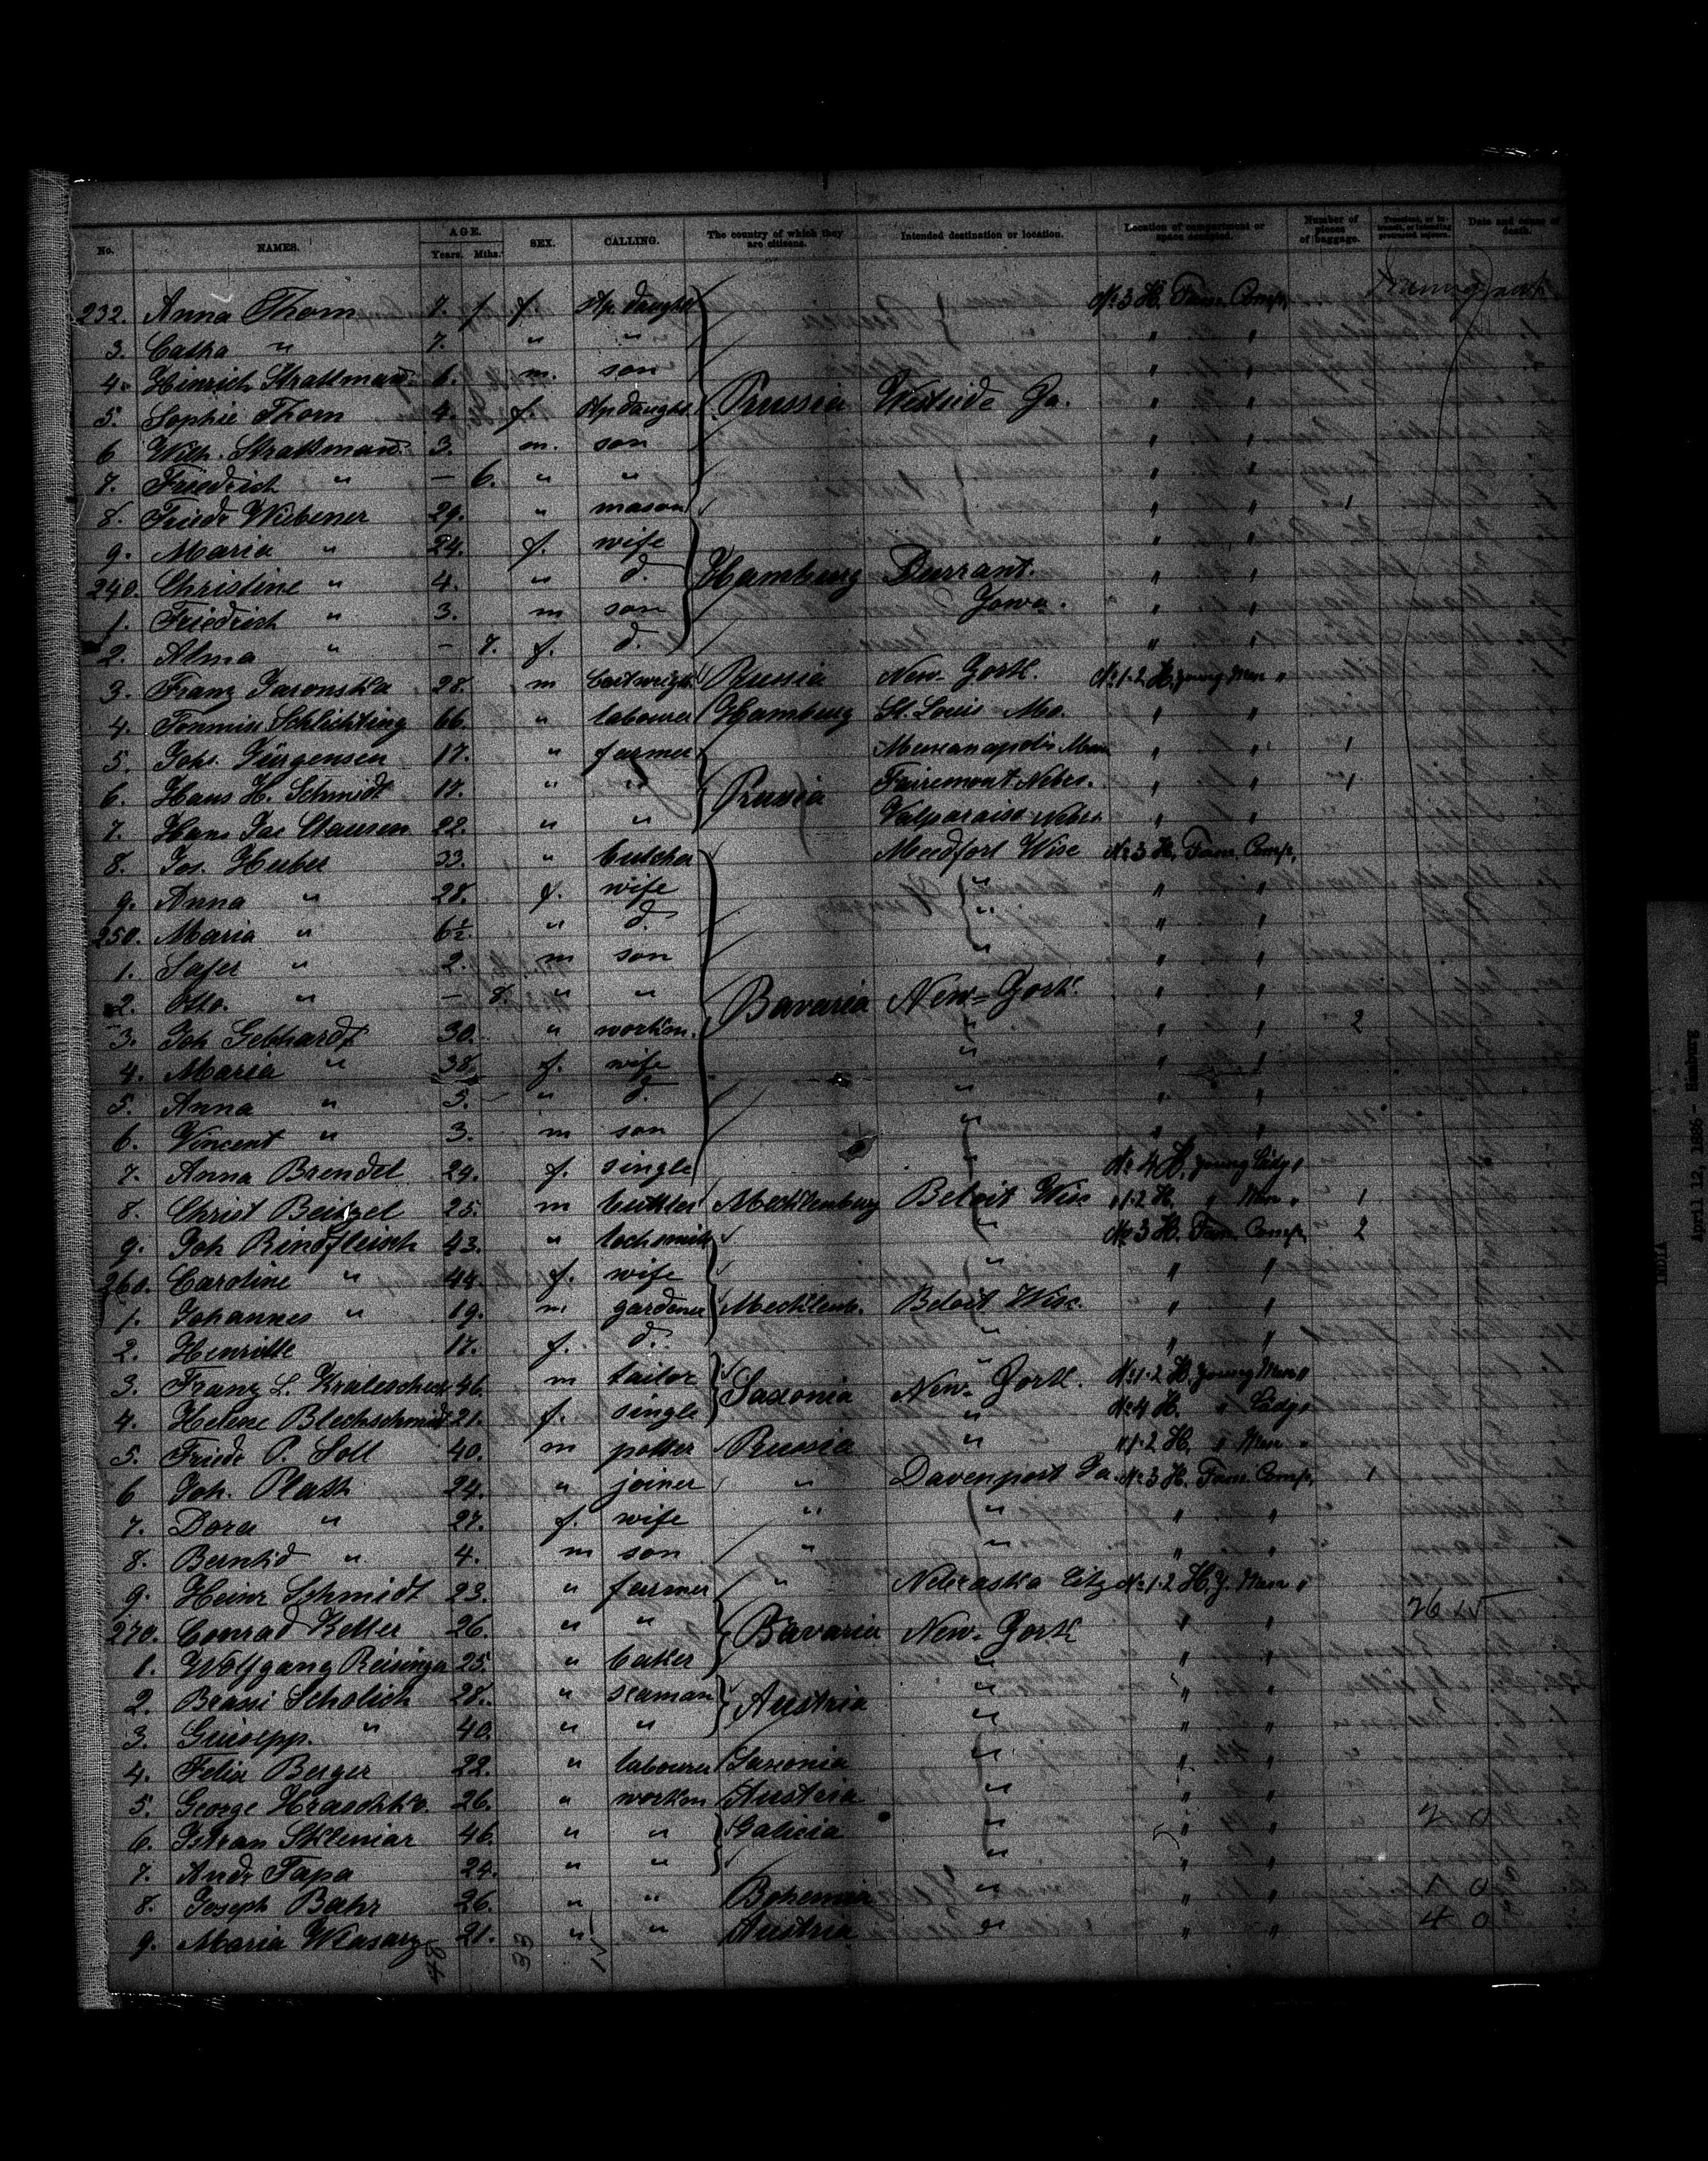 No. NAMES. AGE. Years. Mths. SEX. CALLING. The country of which they are citizens. Intended destination or location. Location of compartment or space occupied. Number of pieces of baggage. Transient, or in transit, or intending protracted sojourn. Date and cause of death.
232. Anna Thom 7. f. Stp. daught No 3 H. Fam. Comp.
3. Catha " 7. " " " "
4. Hinrich Strattmann 6. m. son " "
5. Sophie Thom 4. f. Stp daught Prussia Westside Ja. " "
6 Wilh. Strattmann 3. m. son " "
7. Friedrich " – 6. " " " "
8. Friedr Wiebener 29. " mason " " 1
9. Maria " 24. f. wife " "
240. Christine " 4. " d. Hamburg Durrant. " "
1. Friedrich " 3. m son Jowa. " "
2. Alma " – 7. f. d. " "
3. Franz 28. m Russia New-York. No 1-2 H. young Men "
4. Schlichting 66. " labourer Hamburg St. Louis Mo. " "
5. Johs. Jürgensen 17. " farmer " " 1
6. Hans H. Schmidt 17. " " Prussia Fairemont Nebr. " " 1
7. Hans Jac Clausen 22. " " Valparaiso Nebr. " "
8. Jos. Huber 33. " butcher Meedfort Wisc No 3 H. Fam. Comp.
9. Anna " 28. f. wife " " "
250. Maria " 6½. " d. " " "
1. " 2. m son " " "
2. Otto. " – 8. " " Bavaria New-York. " "
3. Joh Gebhardt 30. " workm. " " " 2
4. Maria " 38. f. wife " " "
5. Anna " 5. " d. " " "
6. Vincent " 3. m son " " "
7. Anna Brendel 24. f. single " No 4 H. young Lady "
8. Christ Beitzel 25. m Mecklenburg Beloit Wisc 1-2 H. " Men " 1
9. Joh Rindfleisch 43. " lochsmith " No 3 H. Fam. Comp. 2
260. Caroline " 44. f. wife " " "
1. Johannes " 19. m gardener Mecklenb. Beloit Wisc. " "
2. Henritte 17. f. d. " " "
3. Franz L. 46. m tailor Saxonia New-York. No 1-2 H. young Men "
4. Helene Blechschmidt 21. f. single " No 4 H. " Lady "
5. Friedr P. Soll 40. m potter Russia " 1-2 H. " Men "
6 Joh. Plath 24. " joiner " Davenport Ja. No 3 H. Fam. Comp. 1
7. Dora " 27. f. wife " " " "
8. " 4. m son " " " "
9. Heinr Schmidt 23. " farmer " Nebraska City No 1-2 H. Y. Men "
270. Conrad Keller 26. " " Bavaria New-York " "
1. Wolfgang Reisinga 25. " baker " " "
2. Brassi Scholich 28. " seaman Austria " " "
3. Giusepp. " 40. " " " " "
4. Felix Berger 22. " labourer Saxonia " " "
5. George Hraschka 26. " workm Austria " " "
6. Istvan Skleniar 46. " " Galicia " " " 2 0
7. Andr Papa 24. " " " " "
8. Joseph Bahr 26. " " Bohemia " " " 1 0
9. Maria 21. " " Austria " " " 4 0
33
INDIA
April 12, 1886 - Hamburg